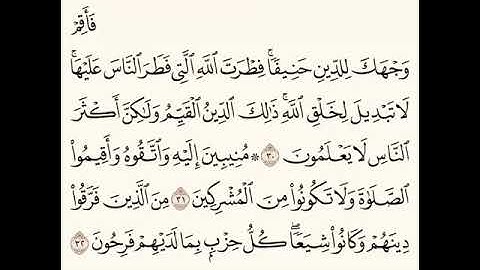 فَأَقِمْ
وَجْهَكَ لِلدِّينِ حَنِيفًاۚ فِطْرَتَ ٱللَّهِ ٱلَّتِي فَطَرَ ٱلنَّاسَ عَلَيْهَاۚ
لَا تَبْدِيلَ لِخَلْقِ ٱللَّهِۚ ذَٰلِكَ ٱلدِّينُ ٱلْقَيِّمُ وَلَٰكِنَّ أَكْثَرَ
ٱلنَّاسِ لَا يَعْلَمُونَ ٣٠ ۞ مُنِيبِينَ إِلَيْهِ وَٱتَّقُوهُ وَأَقِيمُوا۟
ٱلصَّلَوٰةَ وَلَا تَكُونُوا۟ مِنَ ٱلْمُشْرِكِينَ ٣١ مِنَ ٱلَّذِينَ فَرَّقُوا۟
دِينَهُمْ وَكَانُوا۟ شِيَعًاۖ كُلُّ حِزْبٍۭ بِمَا لَدَيْهِمْ فَرِحُونَ ٣٢